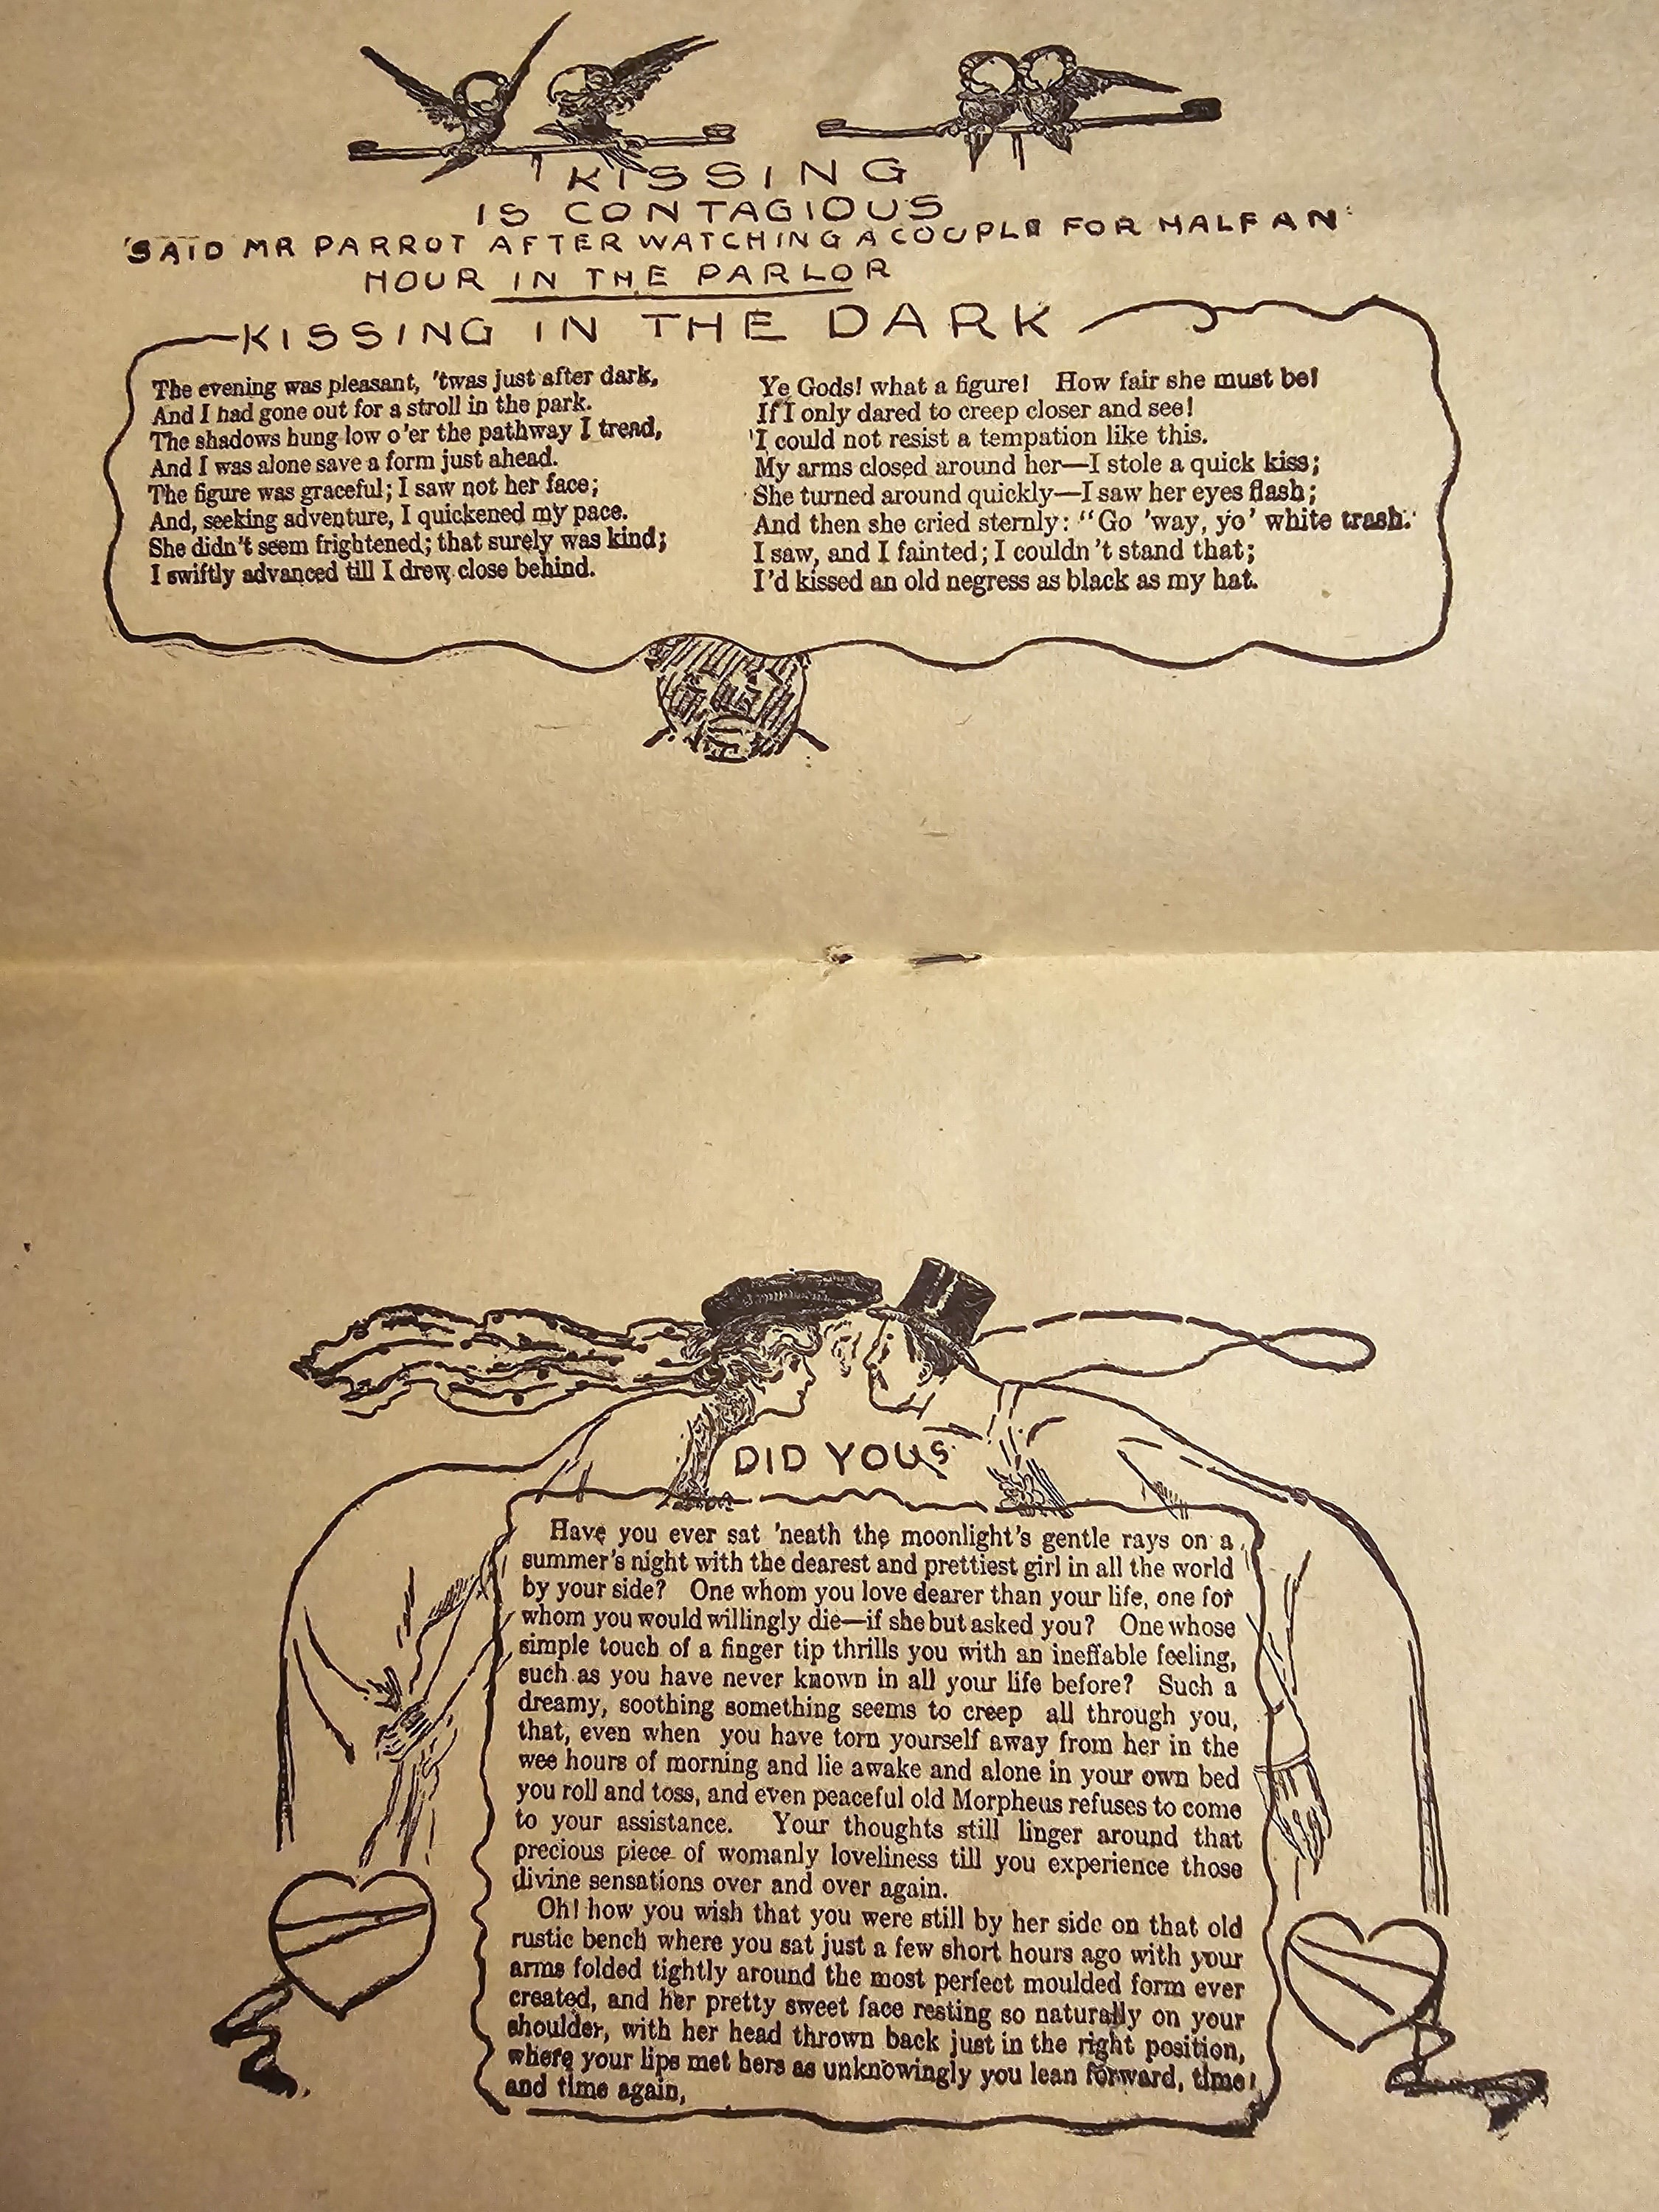 KISSING
IS CONTAGIOUS
'SAID MR PARROT AFTER WATCHING A COUPLE FOR HALF AN
HOUR IN THE PARLOR
KISSING IN THE DARK
The evening was pleasant, 'twas just after dark,
And I had gone out for a stroll in the park.
The shadows hung low o'er the pathway I tread,
And I was alone save a form just ahead.
The figure was graceful; I saw not her face;
And, seeking adventure, I quickened my pace.
She didn't seem frightened; that surely was kind;
I swiftly advanced till I drew close behind.
Ye Gods! what a figure! How fair she must be!
If I only dared to creep closer and see!
I could not resist a tempation like this.
My arms closed around her—I stole a quick kiss;
She turned around quickly—I saw her eyes flash;
And then she cried sternly: "Go 'way, yo' white trash."
I saw, and I fainted; I couldn't stand that;
I'd kissed an old negress as black as my hat.
DID YOU?
Have you ever sat 'neath the moonlight's gentle rays on a
summer's night with the dearest and prettiest girl in all the world
by your side? One whom you love dearer than your life, one for
whom you would willingly die—if she but asked you? One whose
simple touch of a finger tip thrills you with an ineffable feeling,
such as you have never known in all your life before? Such a
dreamy, soothing something seems to creep all through you,
that, even when you have torn yourself away from her in the
wee hours of morning and lie awake and alone in your own bed
you roll and toss, and even peaceful old Morpheus refuses to come
to your assistance. Your thoughts still linger around that
precious piece of womanly loveliness till you experience those
divine sensations over and over again.
Oh! how you wish that you were still by her side on that old
rustic bench where you sat just a few short hours ago with your
arms folded tightly around the most perfect moulded form ever
created, and her pretty sweet face resting so naturally on your
shoulder, with her head thrown back just in the right position,
where your lips met hers as unknowingly you lean forward, time
and time again,